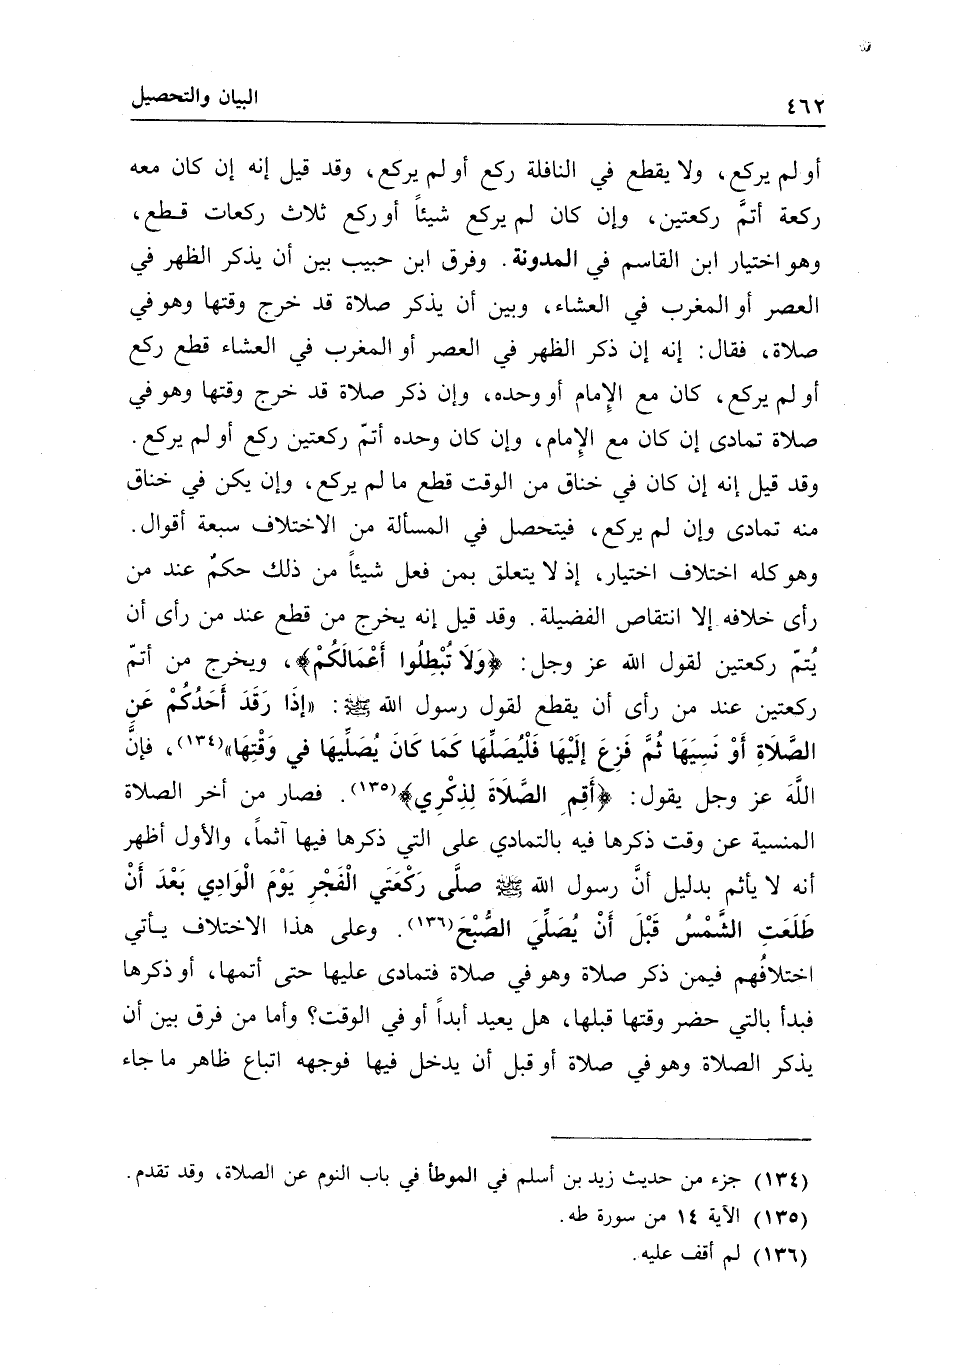 ٤٦٢ البيان والتحصيل
أو لم يركع، ولا يقطع في النافلة ركع أو لم يركع، وقد قيل إنه إن كان معه
ركعة أتمَّ ركعتين، وإن كان لم يركع شيئاً أو ركع ثلاث ركعات قطع،
وهو اختيار ابن القاسم في المدونة. وفرق ابن حبيب بين أن يذكر الظهر في
العصر أو المغرب في العشاء، وبين أن يذكر صلاة قد خرج وقتها وهو في
صلاة، فقال: إنه إن ذكر الظهر في العصر أو المغرب في العشاء قطع ركع
أو لم يركع، كان مع الإمام أو وحده، وإن ذكر صلاة قد خرج وقتها وهو في
صلاة تمادى إن كان مع الإمام، وإن كان وحده أتمّ ركعتين ركع أو لم يركع.
وقد قيل إنه إن كان في خناق من الوقت قطع ما لم يركع، وإن يكن في خناق
منه تمادى وإن لم يركع، فيتحصل في المسألة من الاختلاف سبعة أقوال.
وهو كله اختلاف اختيار، إذ لا يتعلق بمن فعل شيئاً من ذلك حكمٌ عند من
رأى خلافه إلا انتقاص الفضيلة. وقد قيل إنه يخرج من قطع عند من رأى أن
يُتمّ ركعتين لقول الله عز وجل: ﴿وَلَا تُبْطِلُوا أَعْمَالَكُمْ﴾، ويخرج من أتمّ
ركعتين عند من رأى أن يقطع لقول رسول الله ﷺ: «إِذَا رَقَدَ أَحَدُكُمْ عَنِ
الصَّلَاةِ أَوْ نَسِيَهَا ثُمَّ فَزِعَ إِلَيْهَا فَلْيُصَلِّهَا كَمَا كَانَ يُصَلِّيهَا في وَقْتِهَا»(١٣٤)، فإنَّ
اللَّهَ عز وجل يقول: ﴿أَقِمِ الصَّلَاةَ لِذِكْرِي﴾(١٣٥). فصار من أخر الصلاة
المنسية عن وقت ذكرها فيه بالتمادي على التي ذكرها فيها آثماً، والأول أظهر
أنه لا يأثم بدليل أنَّ رسول الله ﷺ صلَّى رَكْعَتَي الْفَجْرِ يَوْمَ الْوَادِي بَعْدَ أَنْ
طَلَعَتِ الشَّمْسُ قَبْلَ أَنْ يُصَلِّيَ الصُّبْحَ(١٣٦). وعلى هذا الاختلاف يأتي
اختلافُهم فيمن ذكر صلاة وهو في صلاة فتمادى عليها حتى أتمها، أو ذكرها
فبدأ بالتي حضر وقتها قبلها، هل يعيد أبداً أو في الوقت؟ وأما من فرق بين أن
يذكر الصلاة وهو في صلاة أو قبل أن يدخل فيها فوجهه اتباع ظاهر ما جاء
(١٣٤) جزء من حديث زيد بن أسلم في الموطأ في باب النوم عن الصلاة، وقد تقدم.
(١٣٥) الآية ١٤ من سورة طه.
(١٣٦) لم أقف عليه.